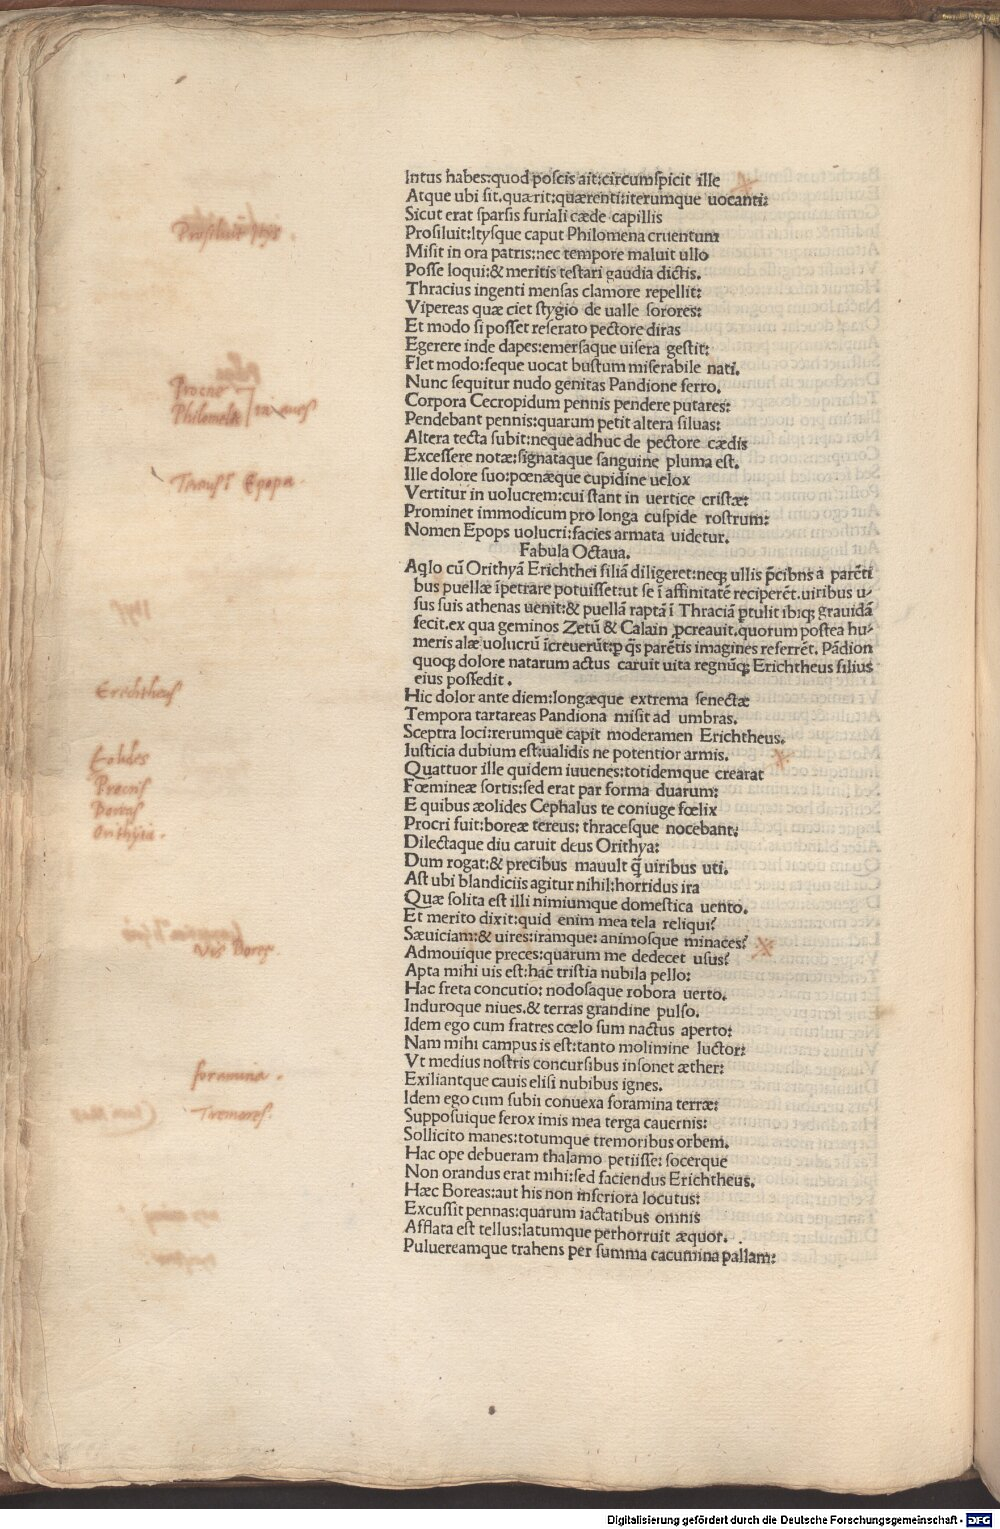 Intus habes:quod poscis ait:circumspicit ille
Atque ubi sit.quærit:quærenti:iterumque uocanti:
Sicut erat sparsis furiali cæde capillis
Prosiluit:Itysque caput Philomena cruentum
Misit in ora patris:nec tempore maluit ullo
Posse loqui:& meritis testari gaudia dictis.
Thracius ingenti mensas clamore repellit:
Vipereas quæ ciet stygio de ualle sorores:
Et modo si posset reserato pectore diras
Egerere inde dapes:emersaque uisera gestit:
Flet modo:seque uocat bustum miserabile nati.
Nunc sequitur nudo genitas Pandione ferro.
Corpora Cecropidum pennis pendere putares:
Pendebant pennis:quarum petit altera siluas:
Altera tecta subit:neque adhuc de pectore cædis
Excessere notæ:signataque sanguine pluma est.
Ille dolore suo:pœnæque cupidine uelox
Vertitur in uolucrem:cui stant in uertice cristæ:
Prominet immodicum pro longa cuspide rostrum:
Nomen Epops uolucri:facies armata uidetur.
Fabula Octaua.
Aqlo cū Orithyā Erichthei filiā diligeret:neqꝫ ullis p̄cibns a parēti
bus puellæ īpetrare potuisset:ut se ī affinitatē reciperēt.uiribus u⸗
sus suis athenas uenit:& puellā raptā ī Thraciā ꝑtulit ibiqꝫ grauidā
fecit.ex qua geminos Zetū & Calain ꝓcreauit.quorum postea hu⸗
meris alæ uolucrū īcreuerūt:ꝑ q̄s parētis imagines referrēt. Pādion
quoqꝫ dolore natarum actus caruit uita regnūqꝫ Erichtheus filius
eius possedit.
Hic dolor ante diem:longæque extrema senectæ
Tempora tartareas Pandiona misit ad umbras.
Sceptra loci:rerumque capit moderamen Erichtheus.
Iusticia dubium est:ualidis ne potentior armis.
Quattuor ille quidem iuuenes:totidemque crearat
Fœmineæ sortis:sed erat par forma duarum:
E quibus æolides Cephalus te coniuge fœlix
Procri fuit:boreæ tereus: thracesque nocebant:
Dilectaque diu caruit deus Orithya:
Dum rogat:& precibus mauult q̄ uiribus uti.
Ast ubi blandiciis agitur nihil:horridus ira
Quæ solita est illi nimiumque domestica uento.
Et merito dixit:quid enim mea tela reliqui?
Sæuiciam:& uires:iramque: animosque minaces?
Admouique preces:quarum me dedecet usus?
Apta mihi uis est:hac tristia nubila pello:
Hac freta concutio: nodosaque robora uerto.
Induroque niues.& terras grandine pulso.
Idem ego cum fratres cœlo sum nactus aperto:
Nam mihi campus is est:tanto molimine luctor:
Vt medius nostris concursibus insonet æther:
Exiliantque cauis elisi nubibus ignes.
Idem ego cum subii conuexa foramina terræ:
Supposuique ferox imis mea terga cauernis:
Sollicito manes:totumque tremoribus orbem.
Hac ope debueram thalamo petiisse: socerque
Non orandus erat mihi:sed faciendus Erichtheus.
Hæc Boreas:aut his non inferiora locutus:
Excussit pennas:quarum iactatibus omnis
Afflata est tellus:latumque perhorruit æquor.
Puluereamque trahens per summa cacumina pallam:
Prosiluit Itys.
Procne
Philomela
in aues
Erechtheus
Eolides
Procris
Orithyia.
Vis Boreę.
foramina.
Tremores.
Digitalisierung gefördert durch die Deutsche Forschungsgemeinschaft - DFG